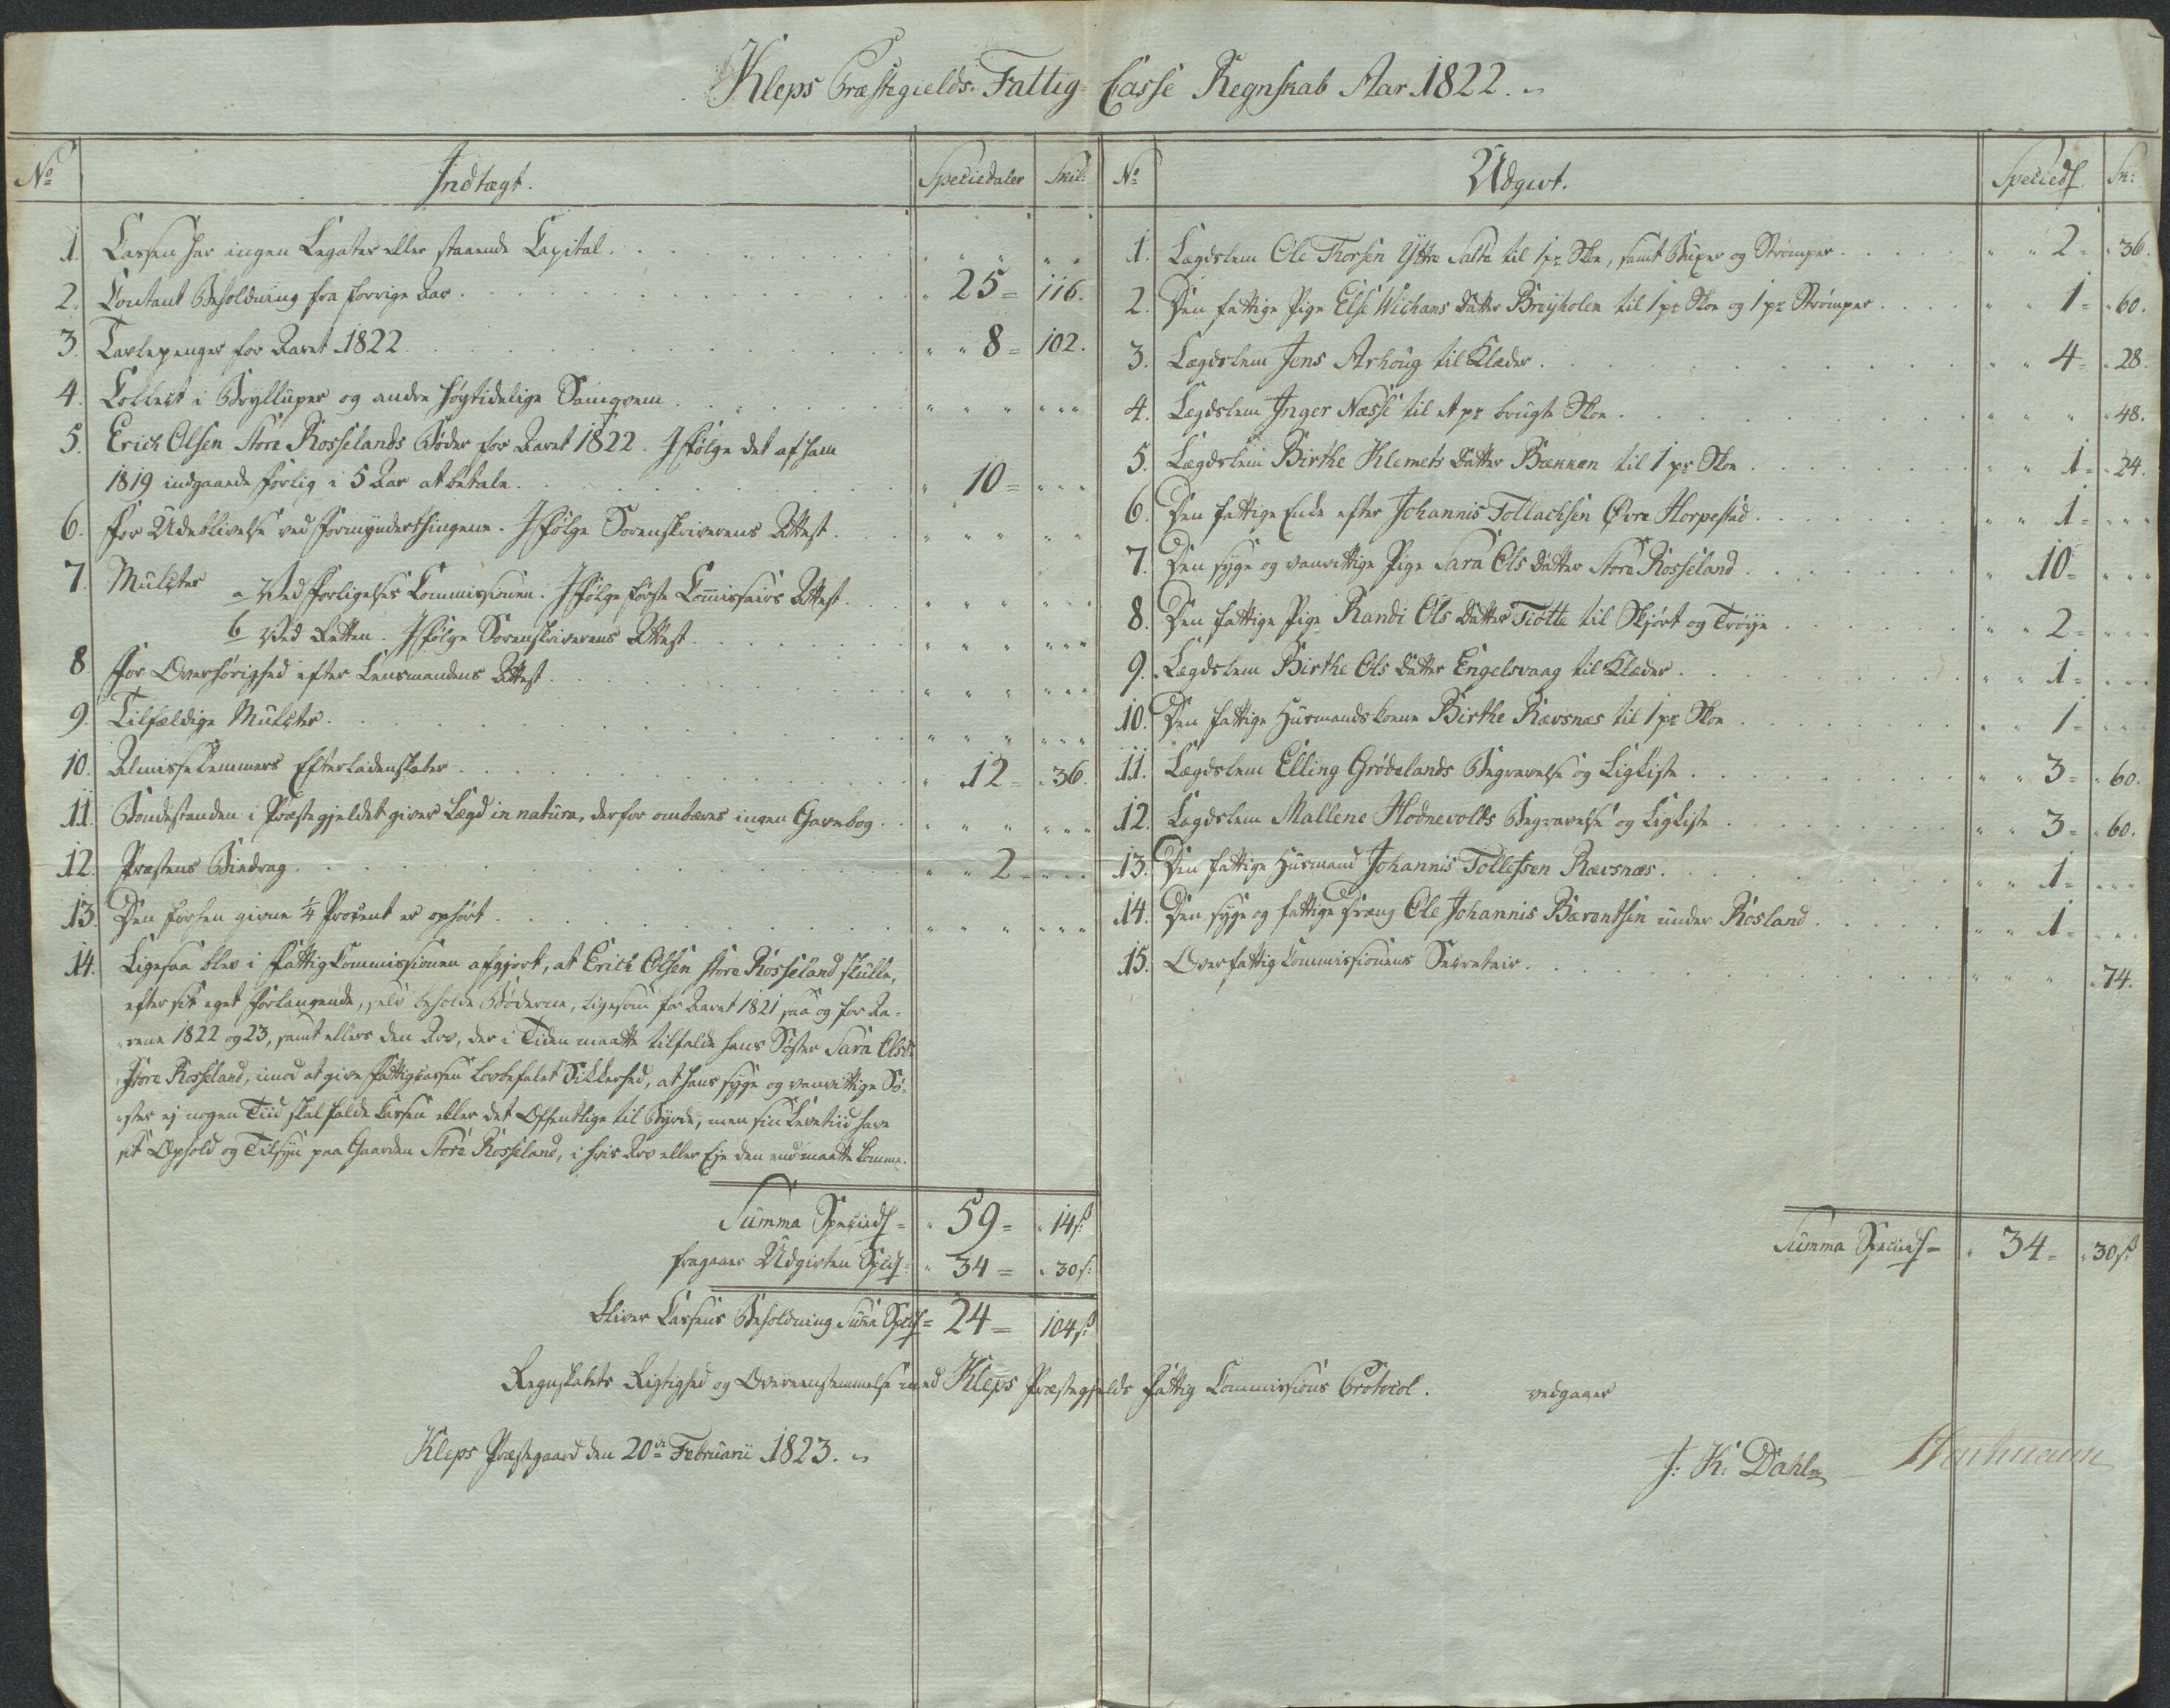 Kleps Præstegields Fattig-Casse Regnskab Aar 1822.
No Indtægt. Speciedaler Skil:
1. Cassen har ingen Legater eller staaende Capital.
2. Contant Beholdning fra forrige Aar 25 = 116.
3. Tavlepenger for Aaret 1822 8 = 102.
4. Collect i Brylluper og andre høytidelige Samqvem
5. Erich Olsen Store Rosselands Bøder for Aaret 1822. Ifølge det af ham
1819 indgaaede Forlig i 5 Aar at betale. 10 =
6. For Udeblivelse ved Formynderthingene. Ifølge Sorenskriverens Attest.
7. Mulcter a Ved Forligelses Commissionen. Ifølge første Com̅issairs Attest.
b Ved Retten. Ifølge Sorenskriverens Attest.
8. For Overhørighed efter Lensmandens Attest.
9. Tilfældige Mulcter.
10. Almisselemmers Efterladenskaber 12 = 36.
11. Bondestanden i Præstegjeldet giver Lægd in natura, derfor ombæres ingen Gavebog.
12. Præstens Bidrag. 2
13. Den forhen givne 1/4 Procent er ophørt.
14. Ligesaa blev i Fattigkommissionen afgjort, at Erich Olsen store Rosseland skulle,
efter sit eget Forlangende, selv beholde Bøderne, ligesom for Aaret 1821 saa og for Aa-
rene 1822 og 23, samt ellers den Arv, der i Tiden maatte tilfalde hans Søster Sara Olsdr
Store Rosseland, imod at give Fattigcassen lovbefalet Sikkerhed, at hans syge og vanvittige Sø-
ster ej nogen Tiid skal falde Cassen eller det Offentlige til Byrde, men sin Levetiid have
sit Ophold og Tilsyn paa Gaarden Store Rosseland, i hvis Arv eller Eje den end maatte komme.
Summa Specieds = 59 = 14 s:
fragaaer Udgivten Spds = 34 = 30 s:
bliver Cassens Beholdning Sum̅a Spds = 24 = 104 s:
No Udgivt. Specieds Sk:
1. Lægdslem Ole Thorsen Yttre Salte til 1 pr Skoe, samt Buxer og Strømper 2 = 36.
2. Den fattige Pige Else Wichans Datter Breyholen til 1 pr Skoe og 1 pr Strømper 1 = 60.
3. Lægdslem Jens Arhoug til Klæder 4 = 28.
4. Lægdslem Inger Næsse til et pr brugte Skoe 48.
5. Lægdslem Birthe Klemets Datter Brænnen til 1 pr Skoe 1 = 24.
6. Den fattige Enke efter Johannis Tollachsen Øvre Horpestad 1 =
7. Den syge og vanvittige Pige Sara Ols Datter Store Rosseland 10 =
8. Den fattige Pige Randi Ols Datter Tiøtte til Skjørt og Trøye 2 =
9. Lægdslem Birthe Ols Datter Engelsvaag til Klæder 1 =
10. Den fattige Huusmandskone Birthe Rævsnæs til 1 pr Skoe 1 =
11. Lægdslem Elling Grødelands Begravelse og Ligkiste 3 = 60.
12. Lægdslem Mallene Hodnevolds Begravelse og Ligkiste 3 = 60.
13. Den fattige Huusmand Johannis Tollefsen Rævsnæs. 1 =
14. Den syge og fattige Dræng Ole Johannis Bærentsen under Rosland 1 =
15. Overfattig Commissionens Secretair 74.
Summa Specieds = 34 = 30 s:
Regnskabets Rigtighed og Overeenstemmelse med Kleps Præstegjelds Fattig Commissions Protocol. vedgaaer
Kleps Præstegaard den 20de Februarii 1823.
J: K: Dahl